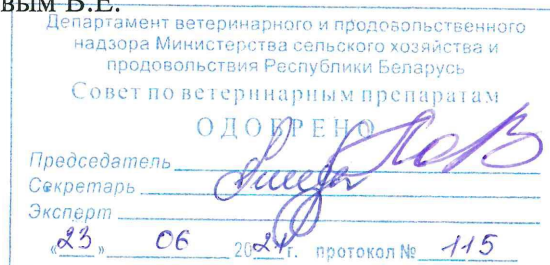 вым В.Е.
Департамент ветеринарного и продовольственного
надзора Министерства сельского хозяйства и
продовольствия Республики Беларусь
Совет по ветеринарным препаратам
ОДОБРЕНО
Председатель
Секретарь
Эксперт
«23» 06 2021г. протокол № 115